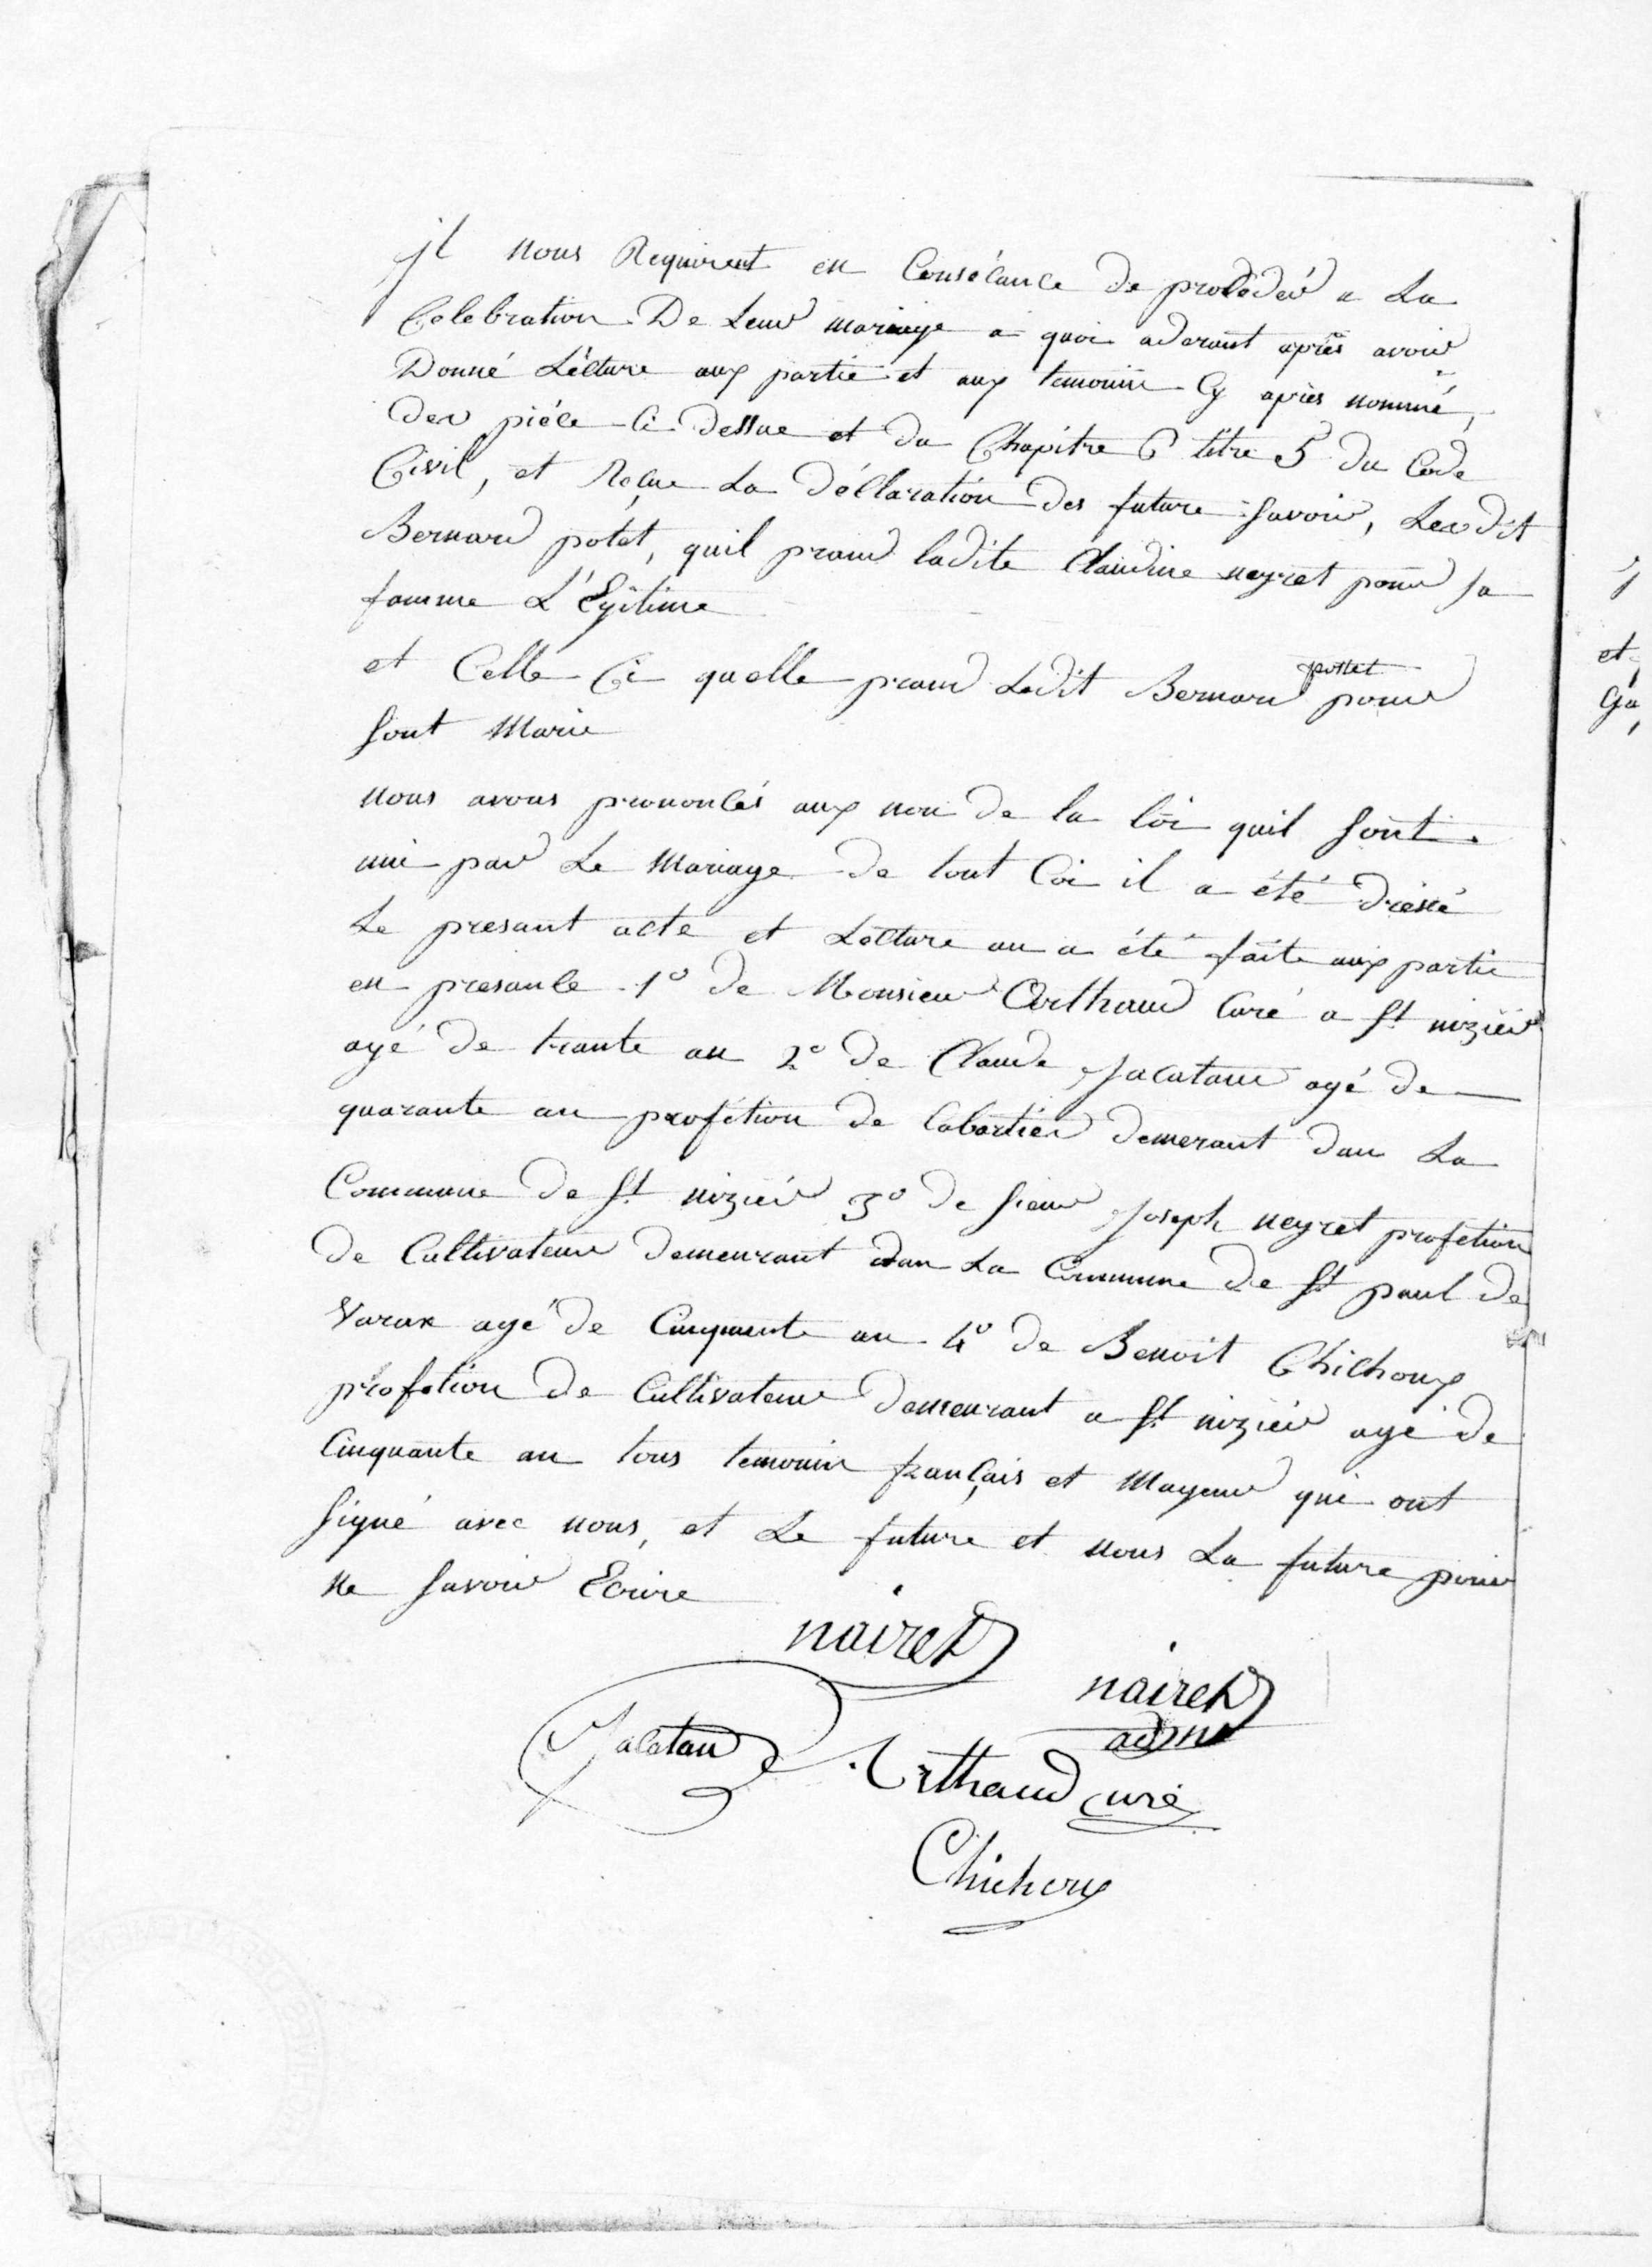 jl nous Requirent en Consécance de procédér a La
Celebration De Leur mariage a quoi aderant après avoir
Donné Lécture aux partie et aux temouin Cy après nommé,
des piéce Ci Dessue et du Chapitre 6 titre 5 du Code
Civil, et Reçue La Déclaration Des future Savoir, Ledit
Bernard potet, quil prand ladite Claudine neyret pour sa
famme L'Egitime
et Celle Ci quelle prand Ledit Bernard pottet pour
Sont Marie
nous avons prononcés aux non de la loi quil Sont
uni par Le Mariage de tout Coi il a été Dressé
Le presant acte et Lecture an a été faite aux partie
en presance 1º de Monsieur Arthaud Curé a St niziér
agé de trante an 2º de Claude Jacatau agé de
quarante an profétion de Cabartiér demerant dan La
Commune de St niziér 3º de Sieur Joseph neyret profetion
de Cultivateur demeurant dan La Commune de St paul de
Varax agé de Cinquente an 4º de Benoit Chichoux
profetion de Cultivateur demeurant a St niziér agé de
Cinquante an tous temouin français et Mageur qui ont
Signé avec nous, et Le future et nous La future pour
ne Savoir Ecrire
nairet
nairet
adjm
Jacatau
Arthaud curé
Chichoux
et
Ga